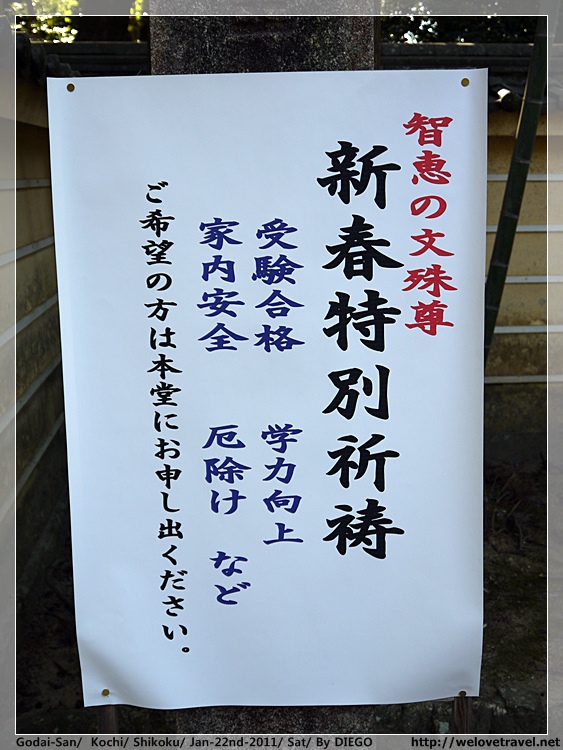 智恵の文殊尊
新春特別祈祷
受験合格 学力向上
家内安全 厄除け など
ご希望の方は本堂にお申し出ください。
Godai-San/ Kochi/ Shikoku/ Jan-22nd-2011/ Sat/ By DIEGO http://welovetravel.net/